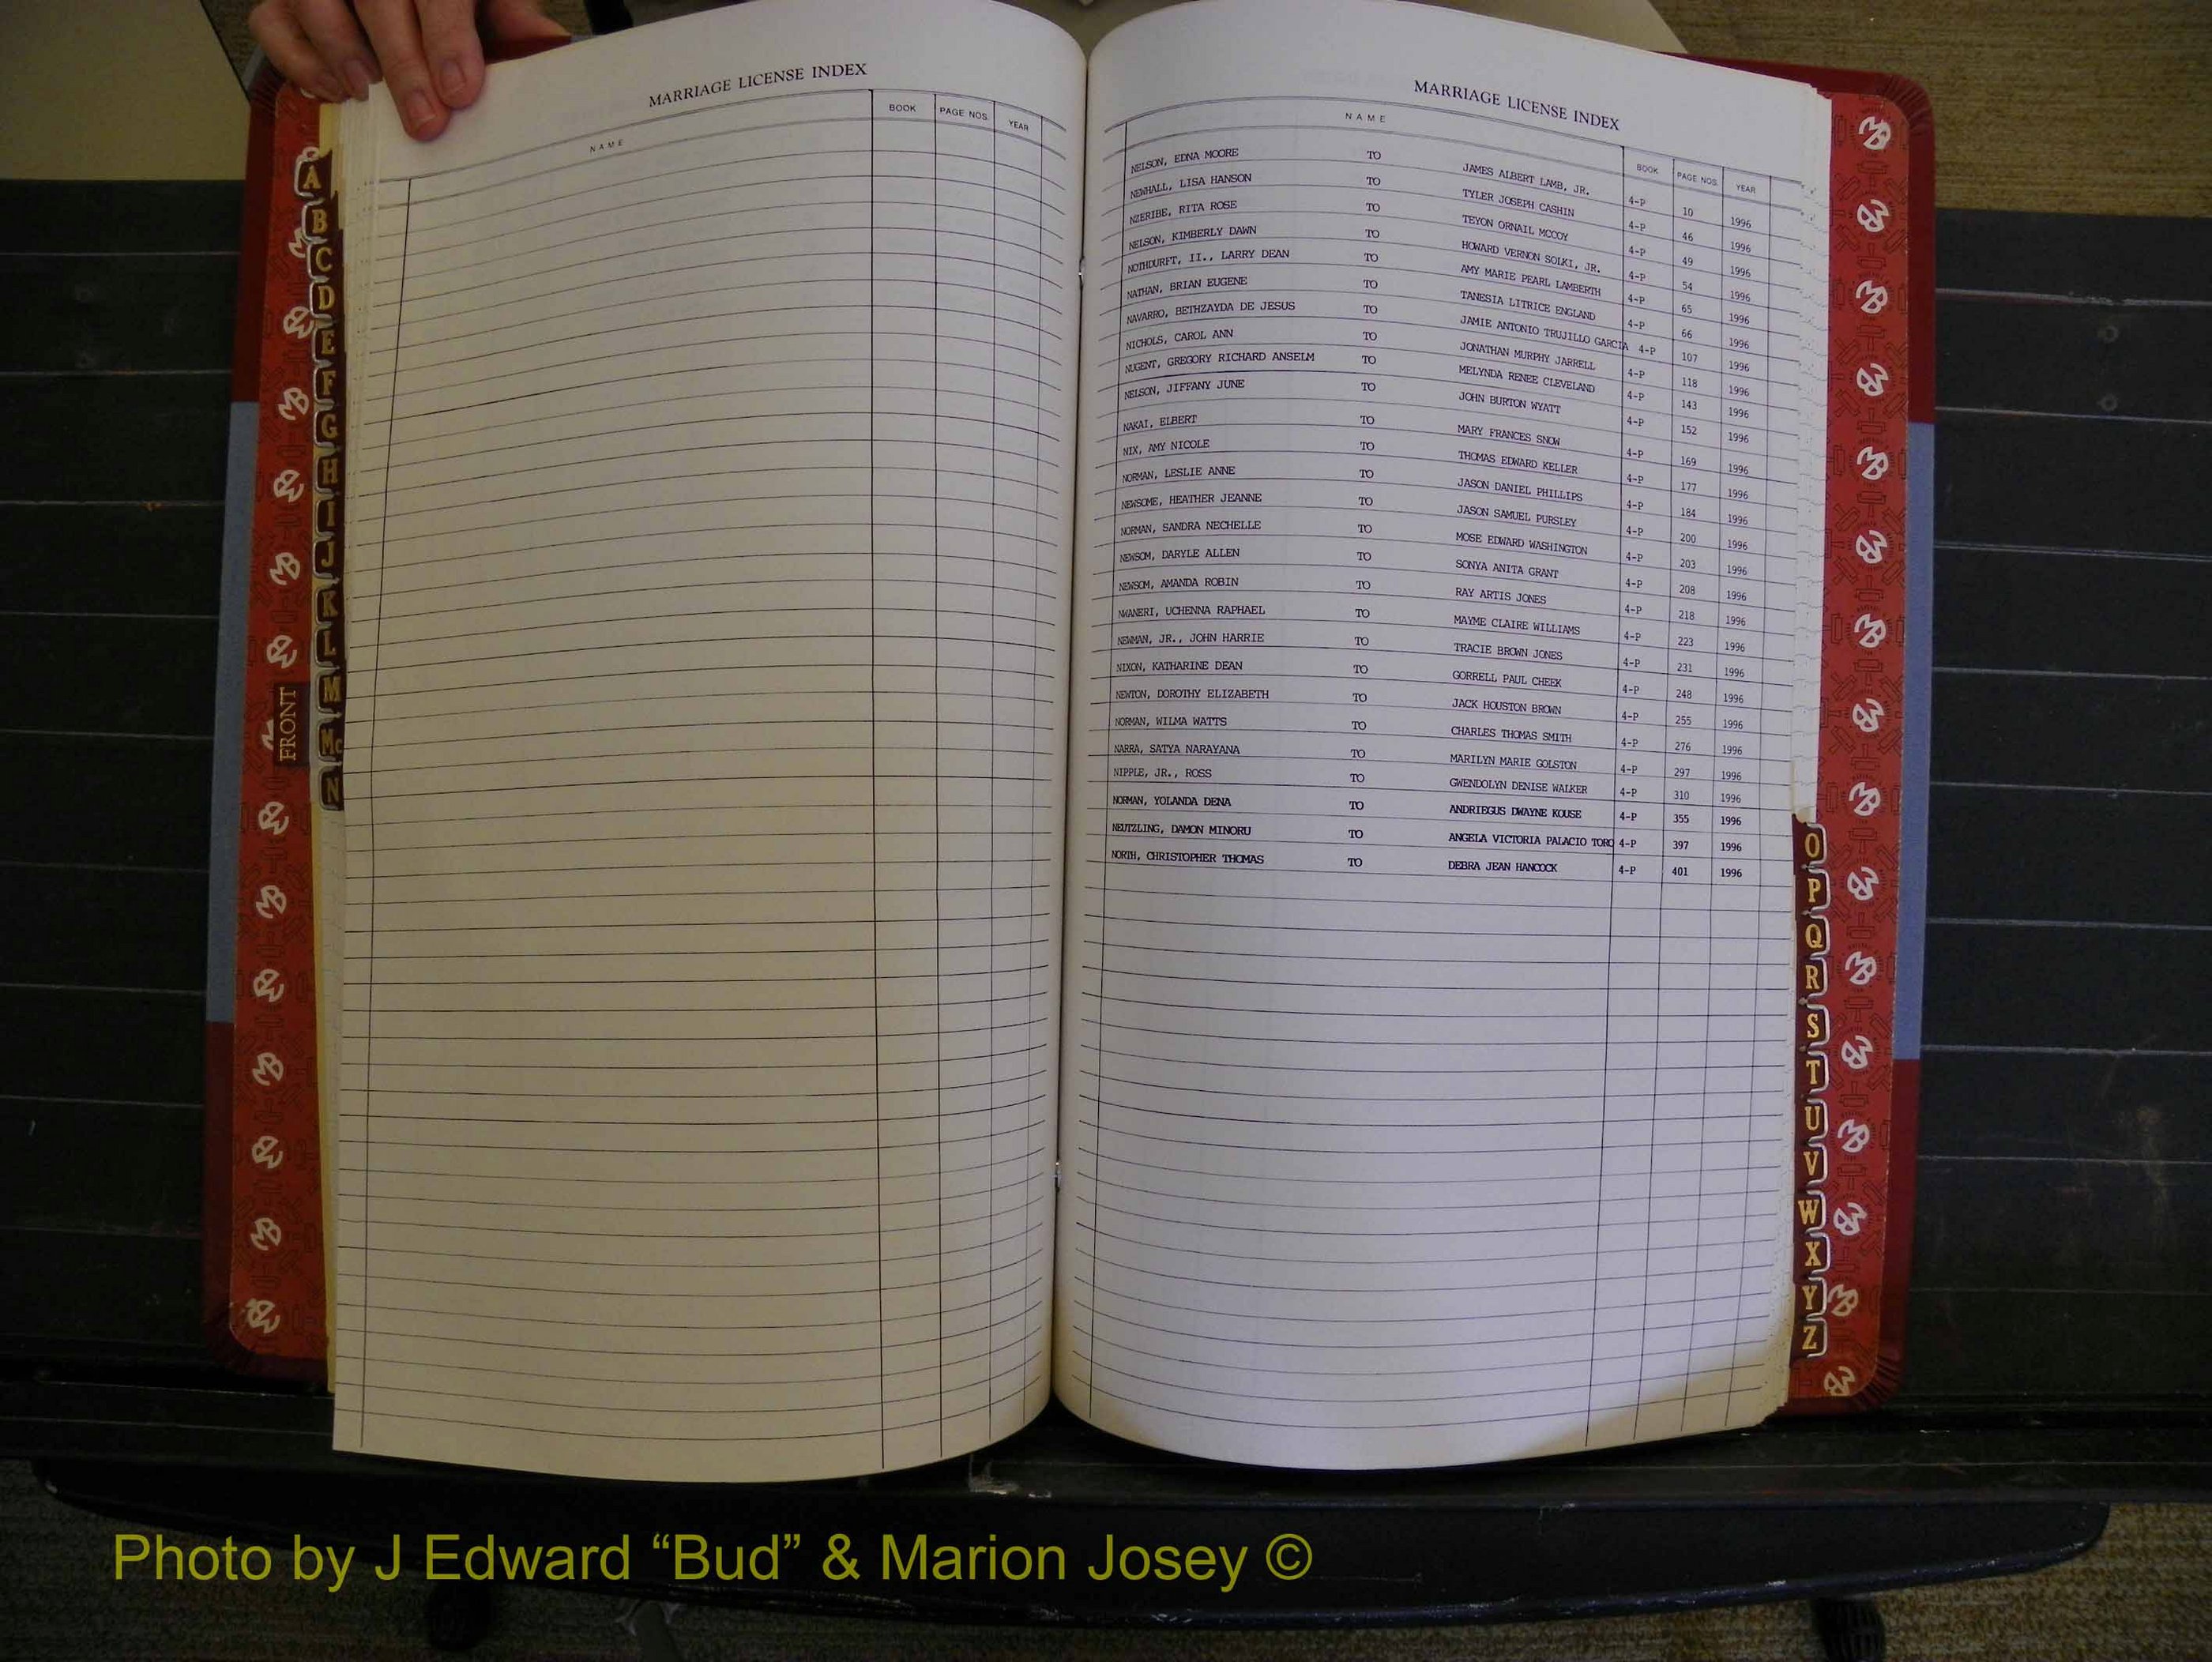 MARRIAGE LICENSE INDEX
NAME BOOK PAGE NOS. YEAR
MARRIAGE LICENSE INDEX
NAME BOOK PAGE NOS. YEAR
NELSON, EDNA MOORE TO JAMES ALBERT LAMB, JR. 4-P 10 1996
NEWHALL, LISA HANSON TO TYLER JOSEPH CASHIN 4-P 46 1996
NZERIBE, RITA ROSE TO TEYON ORNAIL MCCOY 4-P 49 1996
NELSON, KIMBERLY DAWN TO HOWARD VERNON SOLKI, JR. 4-P 54 1996
NOTHDURFT, II., LARRY DEAN TO AMY MARIE PEARL LAMBERTH 4-P 65 1996
NATHAN, BRIAN EUGENE TO TANESIA LITRICE ENGLAND 4-P 66 1996
NAVARRO, BETHZAYDA DE JESUS TO JAMIE ANTONIO TRUJILLO GARCIA 4-P 107 1996
NICHOLS, CAROL ANN TO JONATHAN MURPHY JARRELL 4-P 118 1996
NUGENT, GREGORY RICHARD ANSELM TO MELYNDA RENEE CLEVELAND 4-P 143 1996
NELSON, JIFFANY JUNE TO JOHN BURTON WYATT 4-P 152 1996
NAKAI, ELBERT TO MARY FRANCES SNOW 4-P 169 1996
NIX, AMY NICOLE TO THOMAS EDWARD KELLER 4-P 177 1996
NORMAN, LESLIE ANNE TO JASON DANIEL PHILLIPS 4-P 184 1996
NEWSOME, HEATHER JEANNE TO JASON SAMUEL PURSLEY 4-P 200 1996
NORMAN, SANDRA NECHELLE TO MOSE EDWARD WASHINGTON 4-P 203 1996
NEWSOM, DARYLE ALLEN TO SONYA ANITA GRANT 4-P 208 1996
NEWSOM, AMANDA ROBIN TO RAY ARTIS JONES 4-P 218 1996
NWANERI, UCHENNA RAPHAEL TO MAYME CLAIRE WILLIAMS 4-P 223 1996
NEWMAN, JR., JOHN HARRIE TO TRACIE BROWN JONES 4-P 231 1996
NIXON, KATHARINE DEAN TO GORRELL PAUL CHEEK 4-P 248 1996
NEWTON, DOROTHY ELIZABETH TO JACK HOUSTON BROWN 4-P 255 1996
NORMAN, WILMA WATTS TO CHARLES THOMAS SMITH 4-P 276 1996
NARRA, SATYA NARAYANA TO MARILYN MARIE GOLSTON 4-P 297 1996
NIPPLE, JR., ROSS TO GWENDOLYN DENISE WALKER 4-P 310 1996
NORMAN, YOLANDA DENA TO ANDRIEGUS DWAYNE KOUSE 4-P 355 1996
NEUTZLING, DAMON MINORU TO ANGELA VICTORIA PALACIO TORO 4-P 397 1996
NORTH, CHRISTOPHER THOMAS TO DEBRA JEAN HANCOCK 4-P 401 1996
A
B
C
D
E
F
G
H
I
J
K
L
M
Mc
N
FRONT
O
P
Q
R
S
T
U
V
W
X
Y
Z
Photo by J Edward “Bud” & Marion Josey ©